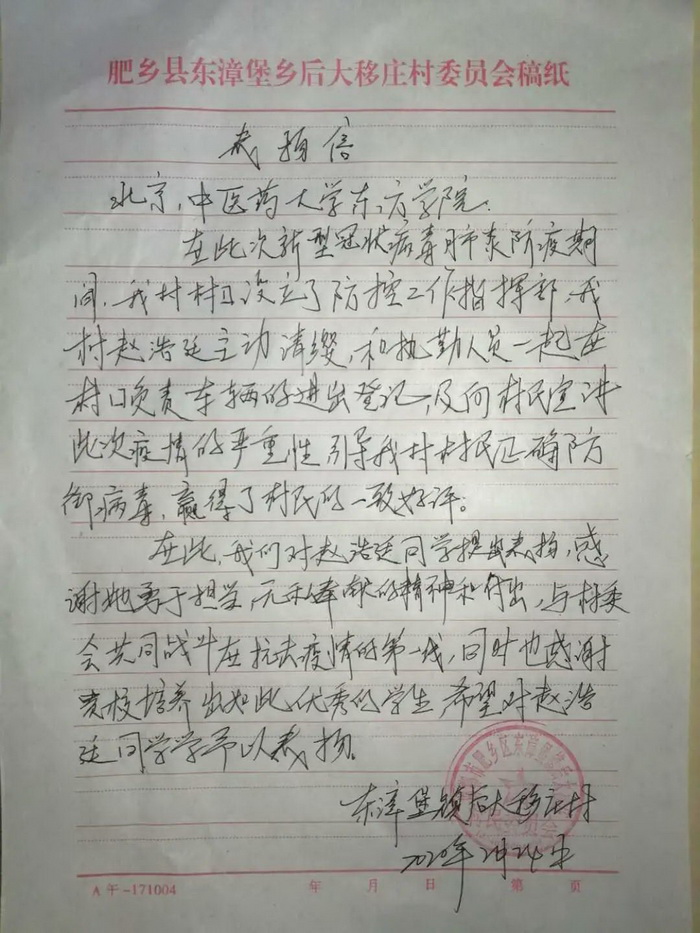 肥乡县东漳堡乡后大移庄村委员会稿纸
表扬信
北京,中医药大学东方学院.
在此次新型冠状病毒肺炎防疫期
间,我村村口设立了防控工作指挥部,我
村赵浩廷主动请缨,和执勤人员一起在
村口负责车辆的进出登记,及向村民宣讲
此次疫情的严重性引导我村村民正确防
御病毒,赢得了村民的一致好评。
在此,我们对赵浩廷同学提出表扬,感
谢她勇于担当,无私奉献的精神和付出,与村委
会共同战斗在抗击疫情的第一线,同时也感谢
贵校培养出如此优秀的学生希望对赵浩
廷同学学予以表扬。
东漳堡镇后大移庄村
2020年2月24日
肥乡区东漳堡镇后大
民委员会
A午-171004 年 月 日 第 页